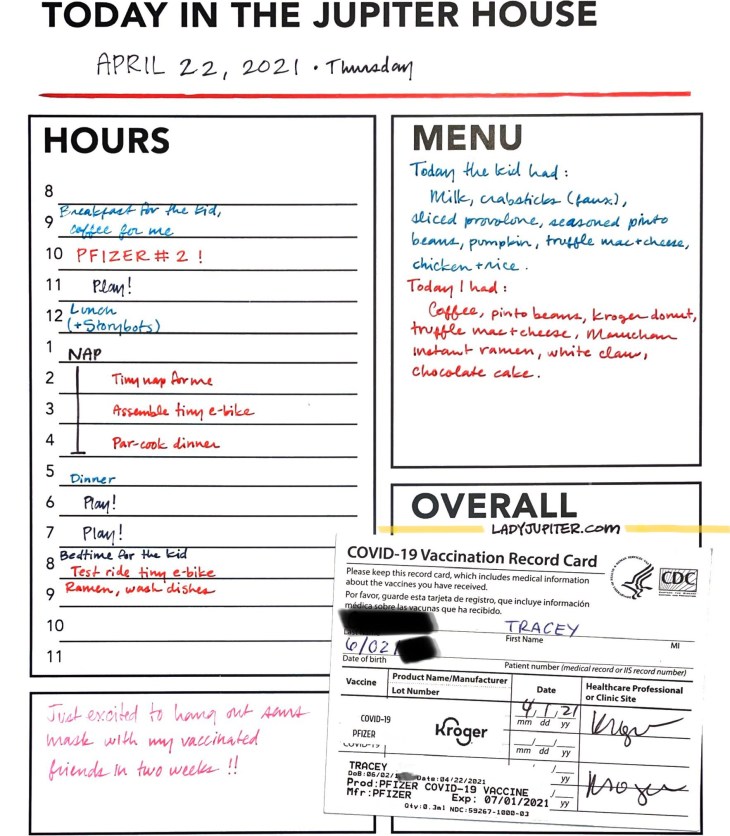 TODAY IN THE JUPITER HOUSE
APRIL 22, 2021 • Thursday
HOURS
8
9 Breakfast for the kid,
coffee for me
10 PFIZER # 2 !
11 Play!
12 Lunch
(+Storybots)
1 NAP
2 Tiny nap for me
3 Assemble tiny e-bike
4 Par-cook dinner
5 Dinner
6 Play!
7 Play!
8 Bedtime for the kid
Test ride tiny e-bike
9 Ramen, wash dishes
10
11
Just excited to hang out sans
mask with my vaccinated
friends in two weeks !!
MENU
Today the kid had:
Milk, crabsticks (faux),
sliced provolone, seasoned pinto
beans, pumpkin, truffle mac+cheese,
chicken+rice.
Today I had:
Coffee, pinto beans, Kroger donut,
truffle mac+cheese, Maruchan
instant ramen, white claw,
chocolate cake.
OVERALL
LADYJUPITER.com
COVID-19 Vaccination Record Card
Please keep this record card, which includes medical information
about the vaccines you have received.
Por favor, guarde esta tarjeta de registro, que incluye información
médica sobre las vacunas que ha recibido.
CDC
TRACEY
First Name MI
6/02
Date of birth Patient number (medical record or IIS record number)
Vaccine Product Name/Manufacturer Date Healthcare Professional
Lot Number or Clinic Site
COVID-19 Kroger 4/1/21 Kroger
PFIZER mm dd yy
COVID-19 mm dd yy
TRACEY yy Kroger
DoB:06/02/ Date:04/22/2021
Prod:PFIZER COVID-19 VACCINE
Mfr:PFIZER Exp: 07/01/2021 yy
Qty:0.3ml NDC:59267-1000-03